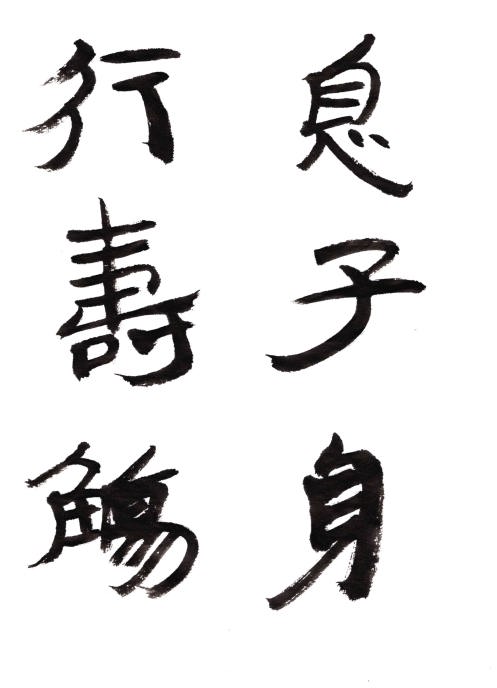 息子身
行壽觴